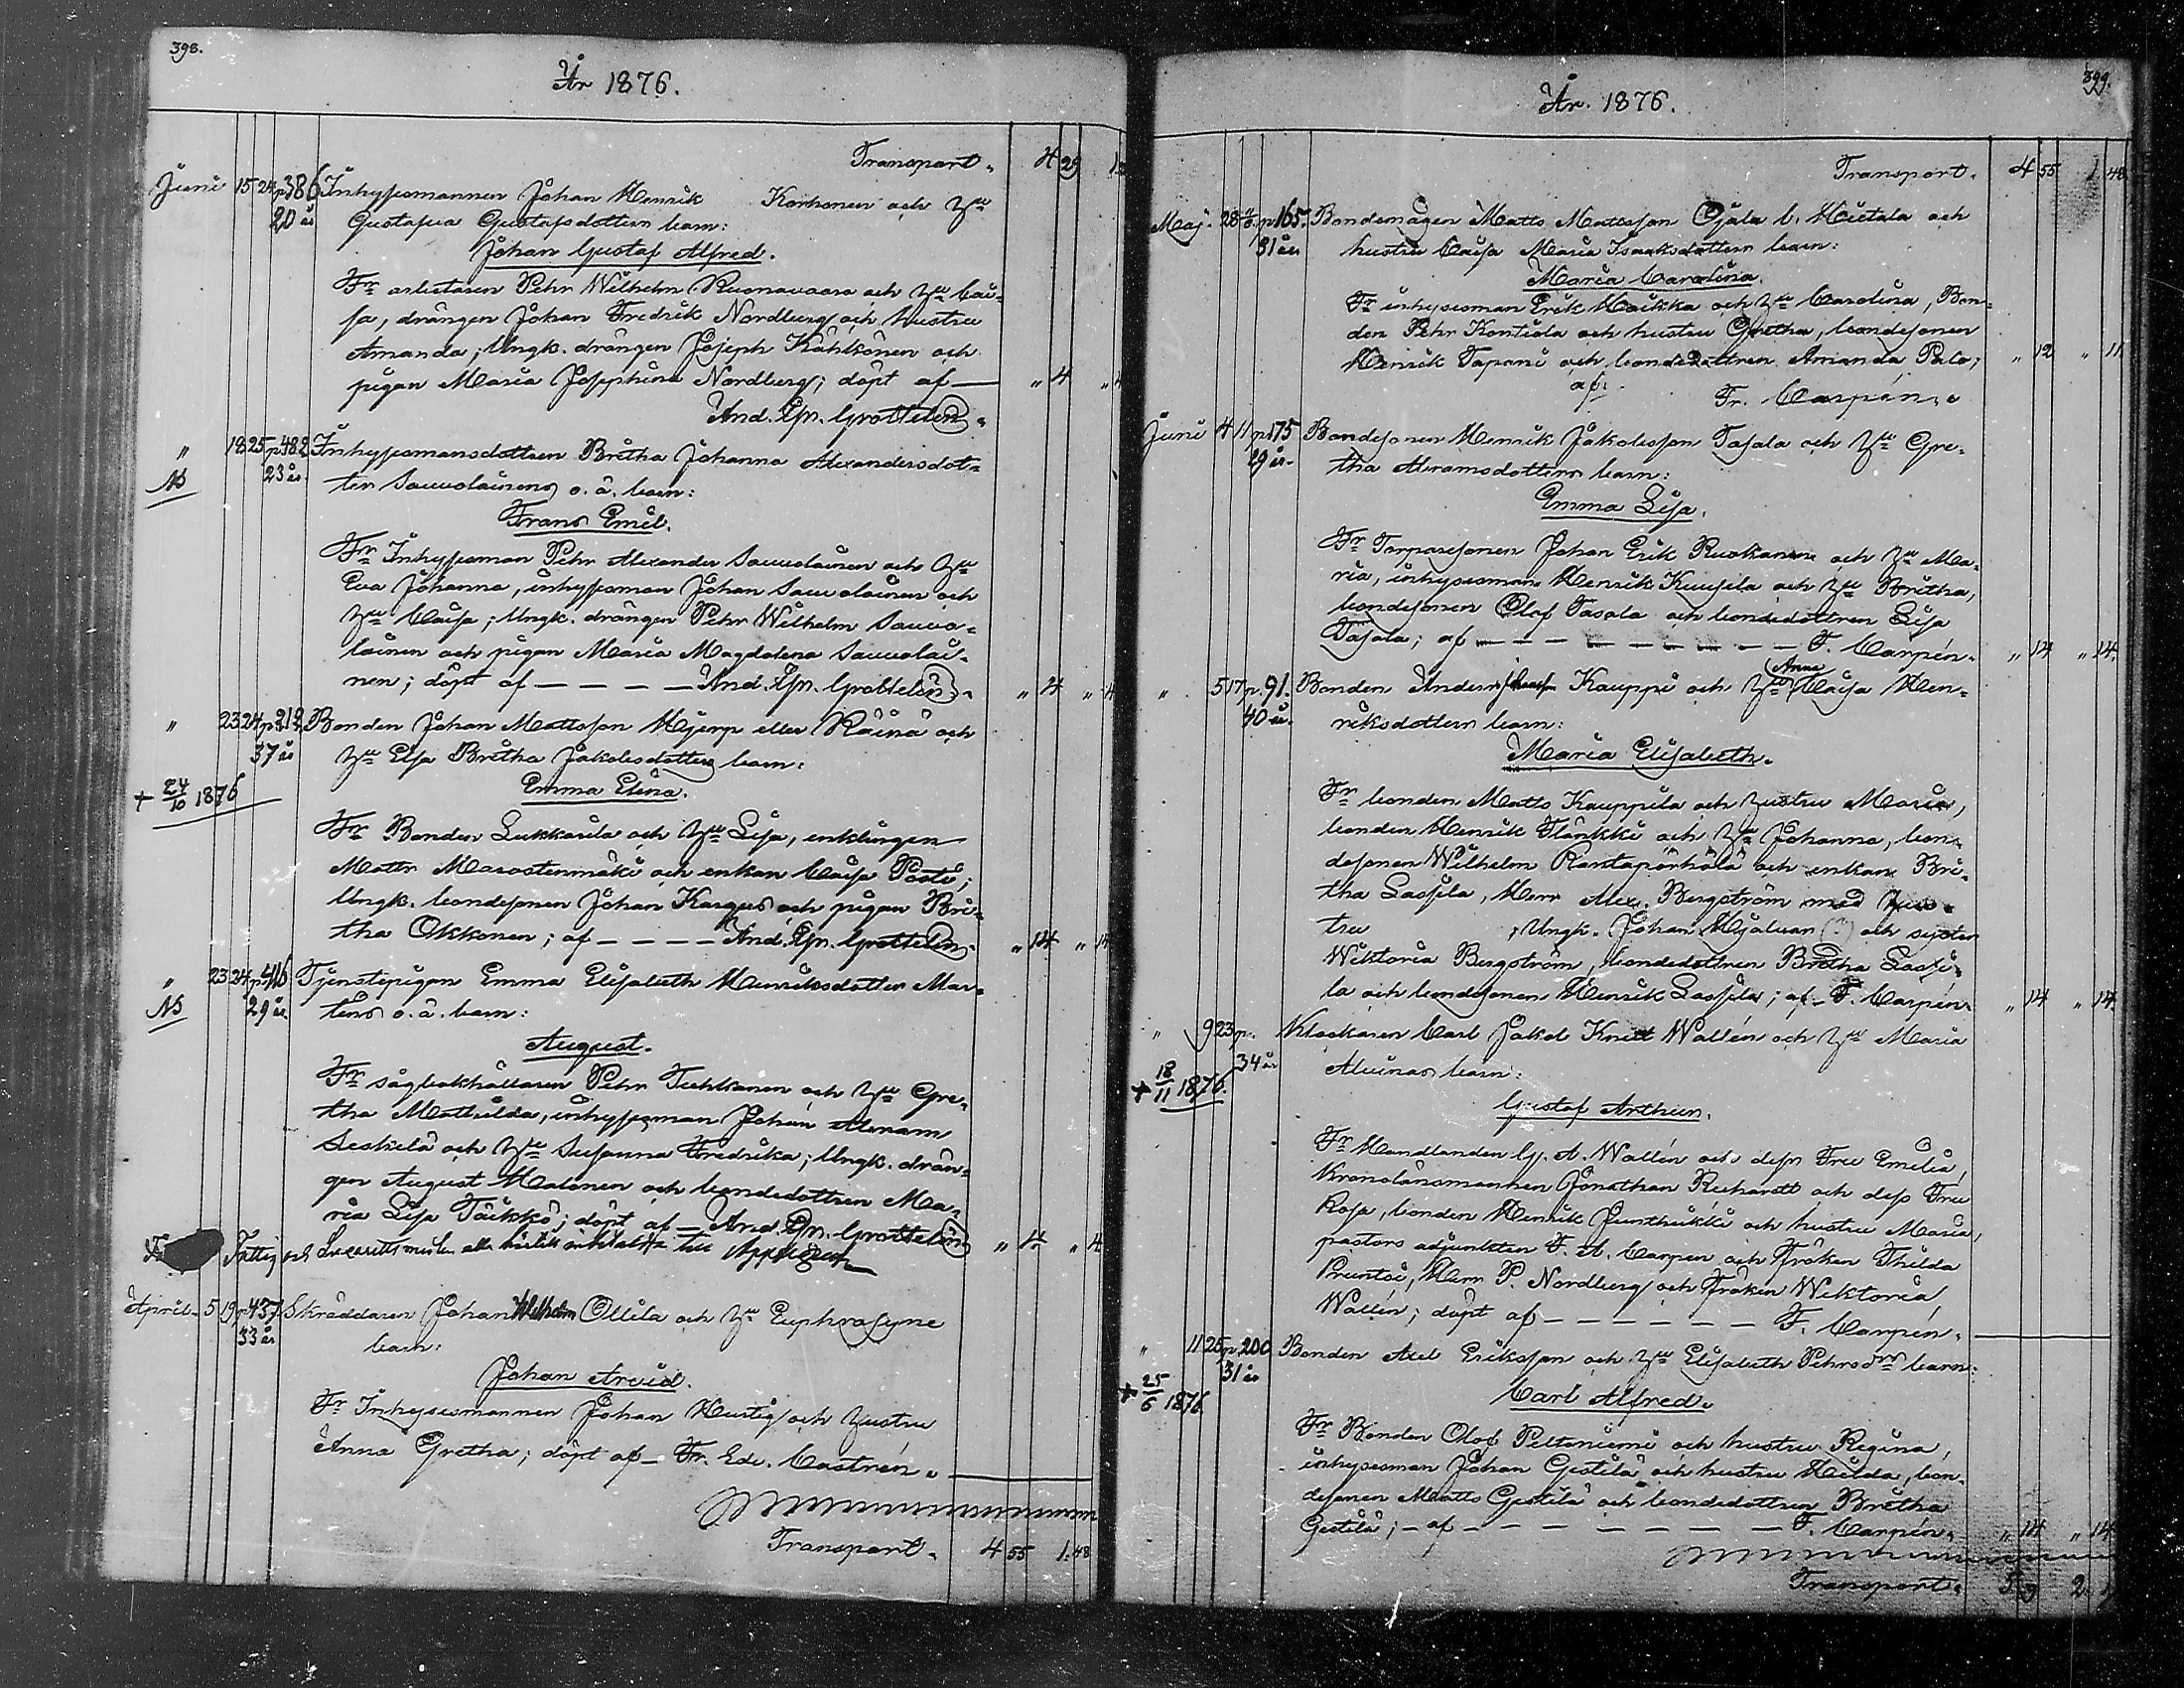 398.
År 1876.
Transport. 4 29
Juni 15 24 p386 Inhysesmannen Johan Henrik Korhonen och Hu
20 år Gustafva Gustafsdotters barn:
Johan Gustaf Alfred.
Fr arbetaren Pehr Wilhelm Ruonavaara och Hu Cai-
sa, drängen Johan Fredrik Nordberg och hustru
Amanda; Ungk. drängen Joseph Kähkönen och
pigan Maria Josephina Nordberg; döpt af — " 4 " 4
And. Joh. Grottelin.
" 18 25 p482 Inhysesmansdottren Britha Johanna Alexandersdot-
23 år ter Sauvolainens o. ä. barn:
Frans Emil.
Fr Inhysesman Pehr Alexander Sauvolainen och Hu
Eva Johanna, inhysesman Johan Sauvolainen och
Hu Caisa; Ungk. drängen Pehr Wilhelm Sauvo-
lainen och pigan Maria Magdalena Sauvolai-
nen; döpt af — — — — And. Joh. Grottelin. " 4 " 4
" 23 24 p212 Bonden Johan Mattsson Hjerp eller Räinä och
37 år Hu Elsa Britha Jakobsdotters barn:
+ 24/10 1876
Emma Elina.
Fr Bonden Lukkarila och Hu Lisa, enklingen
Matts Marostenmäki och enkan Caisa Posti;
Ungk. bondesonen Johan Kargus och pigan Bri-
tha Okkonen; af — — — — And. Joh. Grottelin. " 14 " 14
" 23 24 p416 Tjenstepigan Emma Elisabeth Henriksdotter Mar-
29 år tens o. ä. barn:
August.
Fr sågbokhållaren Pehr Tuhkanen och Hu Gre-
tha Mathilda, inhysesman Johan Abram
Seskelä och Hu Susanna Fredrika; Ungk. drän-
gen August Halonen och bondedottren Ma-
ria Lisa Täikkö; döpt af — And. Joh. Grottelin " 4 " 4
Fattig och
April 5 19 p437 Skräddaren Johan Wilhelm Ollila och Hu Euphrosyne
33 år barn:
Johan Arvid.
Fr Inhysesmannen Johan Hurtig och hustru
Anna Gretha; döpt af — Fr. Edv. Castrén.
Transport. 4 55 1.48
399.
År. 1876.
Transport. 4 55 1 48
Maj. 28 p165. Bondemågen Matts Mattsson Ojala l. Hietala och
31 år hustru Caisa Maria Isaaksdotters barn:
Maria Carolina.
Fr inhysesman Erik Haikka och Hu Carolina, Bon-
den Pehr Kontiola och hustru Gretha, bondesonen
Henrik Tapani och bondedottren Amanda Palo; " 12 " 11
af:
Fr. Carpén.
Juni 4 11 p175 Bondesonen Henrik Jakobsson Tasala och Hu Gre-
29 år. tha Abramsdotters barn:
Emma Lisa.
Fr Torparesonen Johan Erik Ruokanen och Hu Ma-
ria, inhysesman Henrik Kuusela och Hu Britha,
bondesonen Olof Tasala och bondedottren Lisa
Tasala; af — — — — — — — F. Carpén. " 14 " 14.
Anna
" 5 17 p. 91. Bonden Anders Johansson Kauppi och Hu Caisa Hen-
40 år. riksdotters barn:
Maria Elisabeth.
Fr bonden Matts Kauppila och hustru Maria,
bonden Henrik Flänkki och Hu Johanna, bon-
desonen Wilhelm Rantapörhölä och enkan Bri-
tha Lassila, Herr Alex. Bergström med hus-
tru , Ungk. Johan Hjalman (?) och syster
Wiktoria Bergström, bondedottren Britha Lassi-
la och bondesonen Henrik Lassila; af — F. Carpén. " 14 " 14
" 9 23 p. Klockaren Carl Jakob Knut Wallén och Hu Maria
34 år Alvinas barn:
+ 18/11 1876.
Gustaf Arthur.
Fr Handlanden G. A. Wallén och dess Fru Emilia,
Kronolänsmannen Jonathan Richardt och dess Fru
Rosa, bonden Henrik Junttikki och hustru Maria,
pastors adjunkten F. A. Carpen och Fröken Thilda
Pruntsi, Herr P. Nordberg och Fröken Wiktoria
Wallén; döpt af — — — — — — F. Carpén.
" 11 25 p.200 Bonden Axel Eriksson och Hu Elisabeth Pehrsdrs barn:
31 år
+ 25/6 1876.
Carl Alfred.
Fr Bonden Olof Peltoniemi och hustru Regina,
inhysesman Johan Gestilä och hustru Hilda, bon-
desonen Matts Gestilä och bondedottren Britha
Gestilä; — af — — — — — — F. Carpén. " 14 " 14
Transport. 5 9 2.